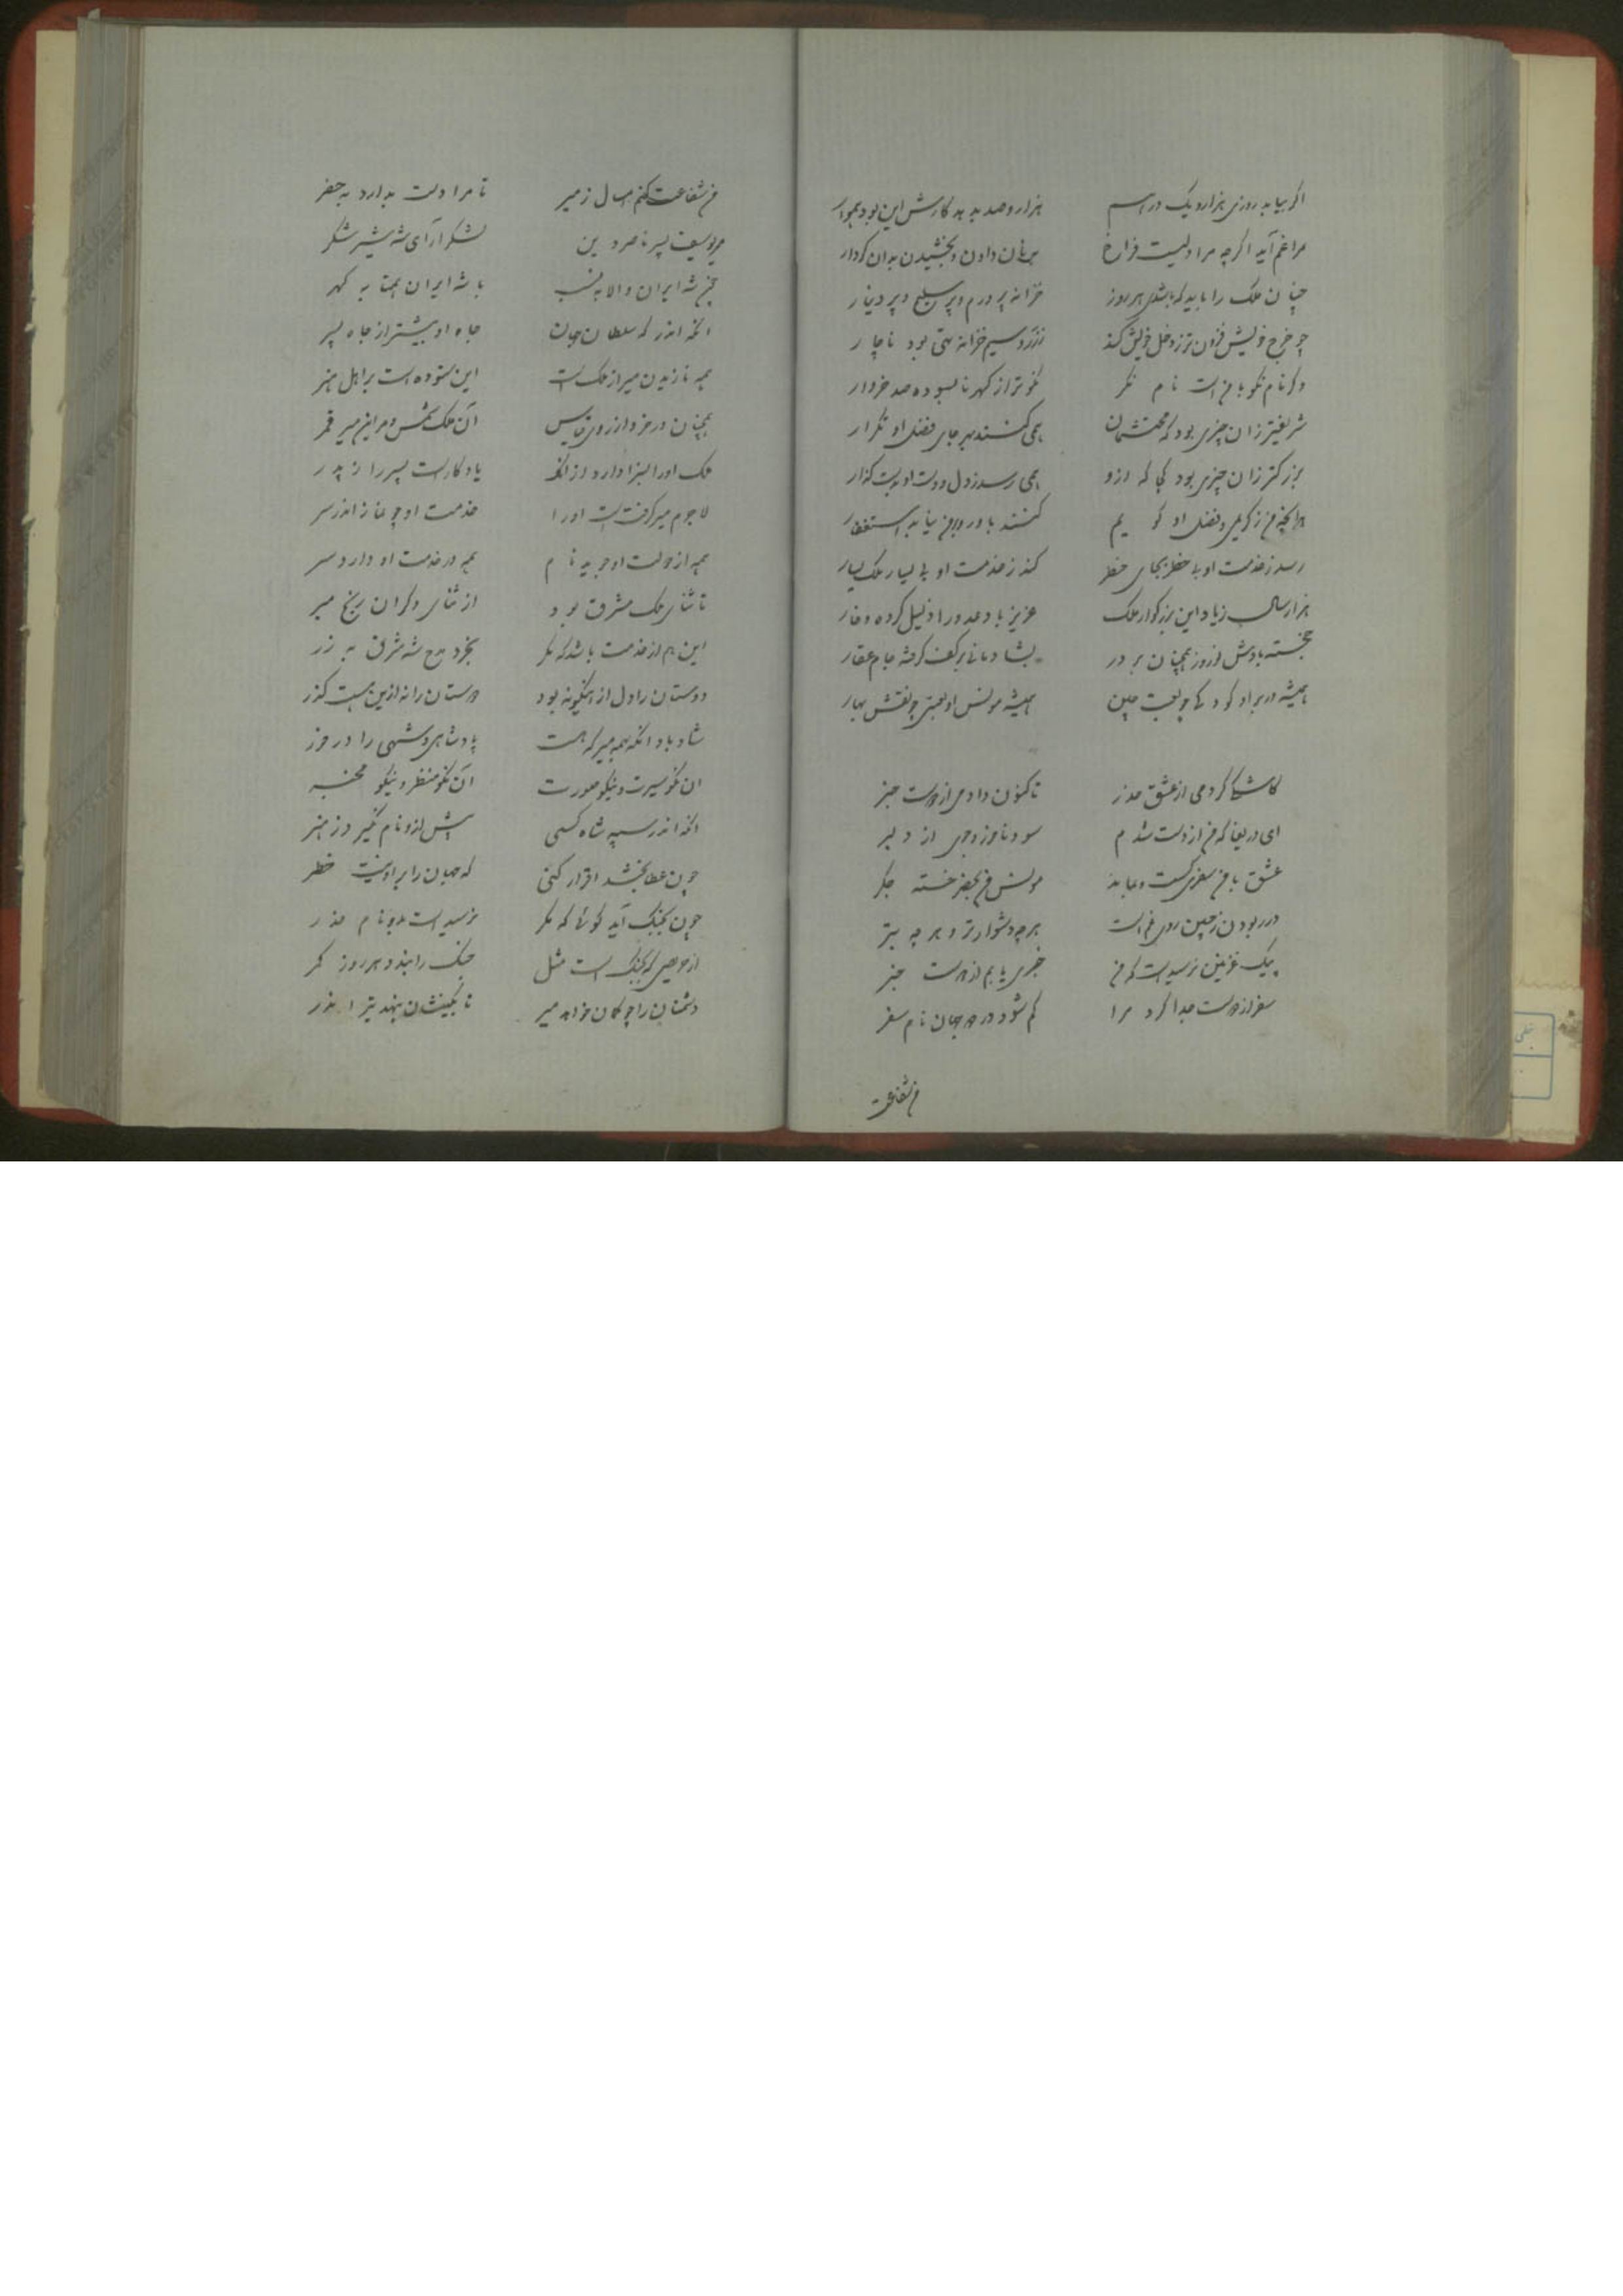 اکر بیابد روزی هزار و یک در اسم هزار و صد بدهد کارش این بود هموار
مرا غم آید اکرچه مرا دلیست فراخ بر مال دادن و بخشیدن بدان کردار
چنان ملک را باید که باشدی هر روز خزانه پر درم و پر سلیح و پر دینار
چو خرج خویش فزون تر ز دخل خویش کند ز زر و سیم خزانه تهی بود ناچار
دکر نام نکو با من است نام نکر نکوتر از کهر نابسوده صد خروار
شریفتر زان چیزی بود که محتشمان همی کنند بهر جای فضل او تکرار
بزرکتر زان چیزی بود کجا که ازو همی رسد ز دل و دست او بدست کذار
هر آنچه من ز کریمی و فضل او کویم کنند باور و بر من نیاید استغفار
رسد ز خدمت او بی خطر بجای خطر کند ز خدمت او بی یسار ملک یسار
هزار سال زیاد این بزرکوار ملک عزیز باد عدو را ذلیل کرده و خوار
خجسته بادش نوروز همچنان بر در بشادمانی بر کف کرفته جام عقار
همیشه در بر او کودکی چو لعبت چین همیشه مونس او لعبتی چو نقش بهار
کاشکی کردمی از عشق حذر تا کنون دادمی از دوست خبر
ای دریغا که من از دست شدم سود نا خورده می از دلبر
عشق با من سفری کشت و بماند مونس من بحضر خسته جکر
دور بودن ز چنین روی غم است هرچه دشوارتر و هرچه بتر
پیک غزنین نرسیدست که من خبری یابم از دوست خبر
سفر از دوست جدا کرد مرا کم شود در دو جهان نام سفر
من شفاعت
من شفاعت کنم امسال ز میر تا مرا دست بدارد به حضر
میر یوسف پسر ناصر دین لشکر آرای شه شیر شکر
چون شه ایران والا به نسب با شه ایران همتا به کهر
آنکه اندر که سلطان جهان جاه او بیشتر از جاه پسر
همه نازیدن میر از ملک است این ستوده است بر اهل هنر
همچنان درخور از روی قیاس آن ملک شمس و مر این میر قمر
ملک او را بسزا دارد از آنک یادکارست پسر را ز پدر
لاجرم میر کرفتست او را خدمت او چو نماز اندر سر
همه از دولت او جوید نام همه در خدمت او دارد سر
تا ثنای ملک مشرق بود از ثنای دکران رنج مبر
این هم از خدمت باشد که مکر بخرد مدح شه شرق به زر
دوستان را دل از اینکونه بود دوستان را نه ازین نیست کذر
شاد باد آنکه همه میر که هست پادشاهی و شهی را در خور
آن نکو سیرت و نیکو صورت آن نکو منظر و نیکو مخبر
آنکه اندر سپه شاه کسی پیش ازو نام نکیرد ز هنر
چون عطا بخشد اقرار کنی که جهان را بر او نیست خطر
چون بجنک آید کوئی که مکر نرسیدست بدو نام حذر
از حریصی که بجنک است مثل جنک را بندد هر روز کمر
دشمنان را چو کمان خواهد میر تا بکینشان بنهد تیر اندر